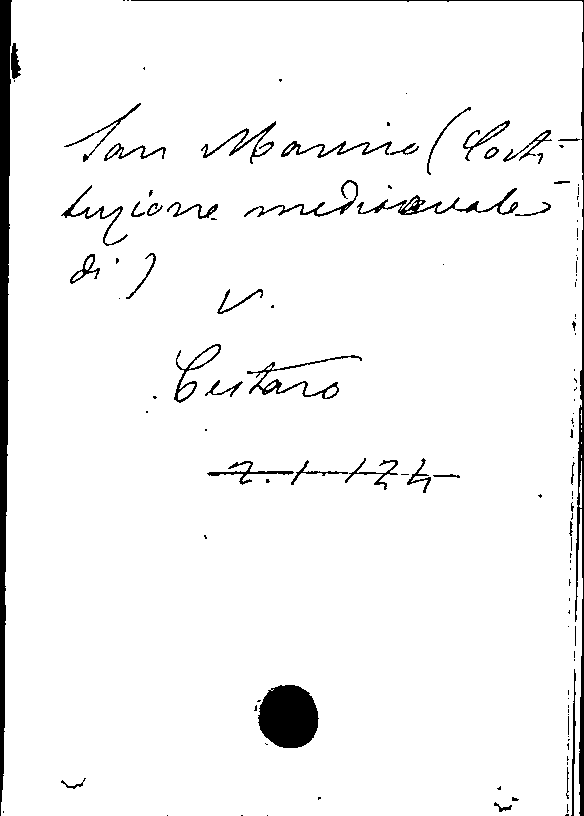 San Marino (Costi-
tuzione medioevale
di)
V.
Cestaro
2.1.124